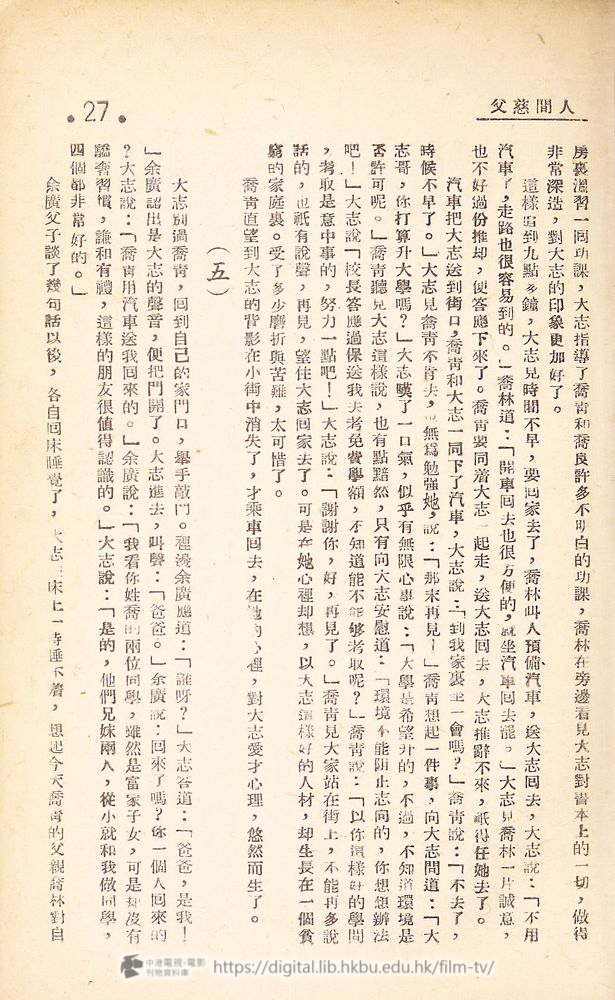 人間慈父
房裏溫習一同功課，大志指導了喬靑和喬良許多不明白的功課，喬林在旁邊看見大志對書本上的一切，做得
非常深造，對大志的印象更加好了。
這樣過到九點多鐘，大志見時間不早，要回家去了，喬林叫人預備汽車，送大志回去，大志說：「不用
汽車了，走路也很容易到的。」喬林道：「開車回去也很方便的，就坐汽車回去罷。」大志見喬林一片誠意，
也不好過份推却，便答應下來了。喬靑要同着大志一起走，送大志回去，大志推辭不來，祇得任她去了。
汽車把大志送到街口，喬靑和大志一同下了汽車，大志說：「到我家裏坐一會嗎？」喬靑說：「不去了，
時候不早了。」大志見喬靑不肯去，也無爲勉强她，說：「那末再見！」喬靑想起一件事，向大志問道：「大
志哥，你打算升大學嗎？」大志嘆了一口氣，似乎有無限心事說：「大學是希望升的，不過，不知道環境是
否許可呢。」喬靑聽見大志這樣說，也有點黯然，只有向大志安慰道：「環境不能阻止志向的，你想想辦法
吧！」大志說「校長答應過保送我去考免費學額，不知道能不能够考取呢？」喬靑說：「以你這樣好的學問
，考取是意中事的，努力一點吧！」大志說：「謝謝你，好，再見了。」喬靑見大家站在街上，不能再多說
話的，也祇有說聲，再見，望住大志回家去了。可是在她心裡却想，以大志這樣好的人材，却生長在一個貧
窮的家庭裏。受了多少磨折與苦難，太可惜了。
喬靑直望到大志的背影在小街中消失了，才乘車回去，在她的心裡，對大志愛才心理，悠然而生了。
（五）
大志別過喬靑，回到自己的家門口，舉手敲門。裡邊余廣應道：「誰呀？」大志答道：「爸爸，是我！
」余廣認出是大志的聲音，便把門開了。大志進去，叫聲：「爸爸。」余廣說：回來了嗎？你一個人回來的
？大志說：「喬靑用汽車送我回來的。」余廣說：「我看你姓喬的兩位同學，雖然是富家子女，可是却沒有
驕奢習慣，謙和有禮，這樣的朋友很値得認識的。」大志說：「是的，他們兄妹兩人，從小就和我做同學，
四個都非常好的。」
余廣父子談了幾句話以後，各自回床睡覺了，大志在床上一時睡不着，想起今天喬靑的父親喬林對自
•27•
中港電視·電影
刊物資料庫
https://digital.lib.hkbu.edu.hk/film-tv/